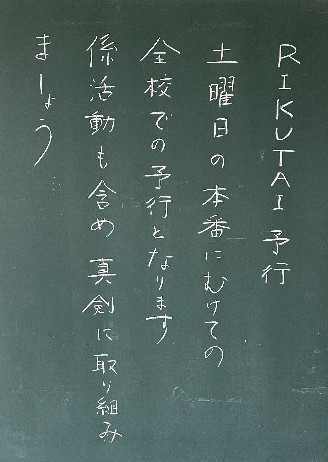 RIKUTAI予行
土曜日の本番にむけての
全校での予行となります
係活動も含め真剣に取り組み
ましょう